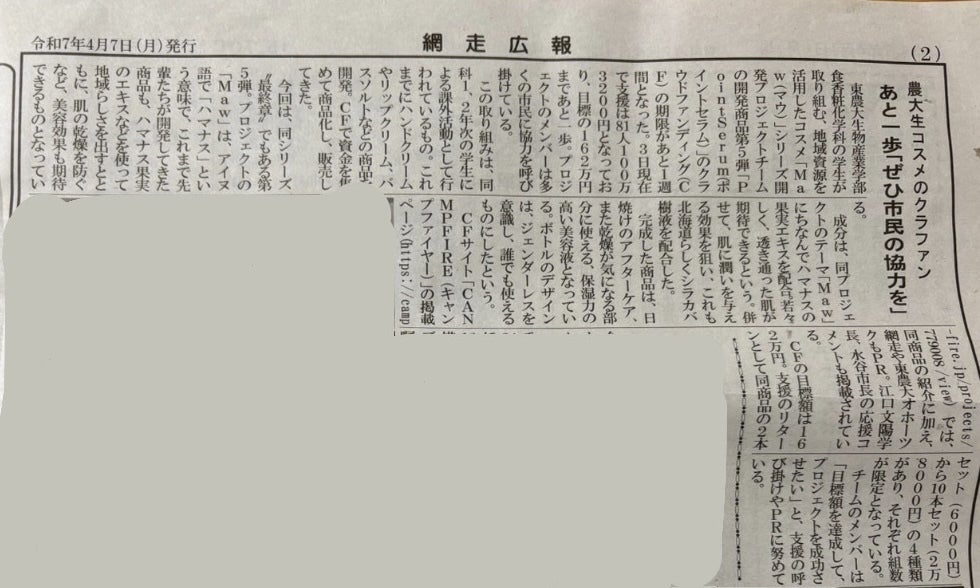 令和7年4月7日(月)発行
網走広報
(2)
農大生コスメのクラファン
あと一歩「ぜひ市民の協力を」
東京農大生物産業学部
食香粧化学科の学生が
取り組む、地域資源を
活用したコスメ「Ma
w(マウ)」シリーズ開
発プロジェクトチーム
の開発商品第5弾「P
ointSerumポ
イントセラム」のクラ
ウドファンディング(C
F)の期限があと1週
間となった。3日現在
で支援は81人100万
3200円となってお
り、目標の162万円
まであと一歩。プロジ
ェクトのメンバーは多
くの市民に協力を呼び
掛けている。
この取り組みは、同
科1、2年次の学生に
よる課外活動として行
われているもの。これ
までにハンドクリーム
やリップクリーム、バ
スソルトなどの商品を
開発。CFで資金を集
めて商品化し、販売し
てきた。
今回は、同シリーズ
〝最終章〟でもある第
5弾。プロジェクトの
「Maw」は、アイヌ
語で「ハマナス」とい
う意味で、これまで先
輩たちが開発してきた
商品も、ハマナス果実
のエキスなどを使って
地域らしさを出すとと
もに、肌の乾燥を防ぐ
など、美容効果も期待
できるものとなってい
る。
成分は、同プロジェ
クトのテーマ「Maw」
にちなんでハマナスの
果実エキスを配合。若々
しく、透き通った肌が
期待できるという。併
せて、肌に潤いを与え
る効果を狙い、これも
北海道らしくシラカバ
樹液を配合した。
完成した商品は、日
焼けのアフターケア、
また乾燥が気になる部
分に使える、保湿力の
高い美容液となってい
る。ボトルのデザイン
は、ジェンダーレスを
意識し、誰でも使える
ものにしたという。
CFサイト「CAN
MPFIRE(キャン
プファイヤー)」の掲載
ページ(https://camp
-fire.jp/projects/
779008/view)では、
同商品の紹介に加え、
網走や東農大オホーツ
クもPR。江口文陽学
長、水谷市長の応援コ
メントも掲載されてい
る。
CFの目標額は16
2万円。支援のリター
ンとして同商品の2本
セット(6000円)
から10本セット(2万
8000円)の4種類
があり、それぞれ組数
が限定となっている。
チームのメンバーは
「目標額を達成して、
プロジェクトを成功さ
せたい」と、支援の呼
び掛けやPRに努めて
いる。